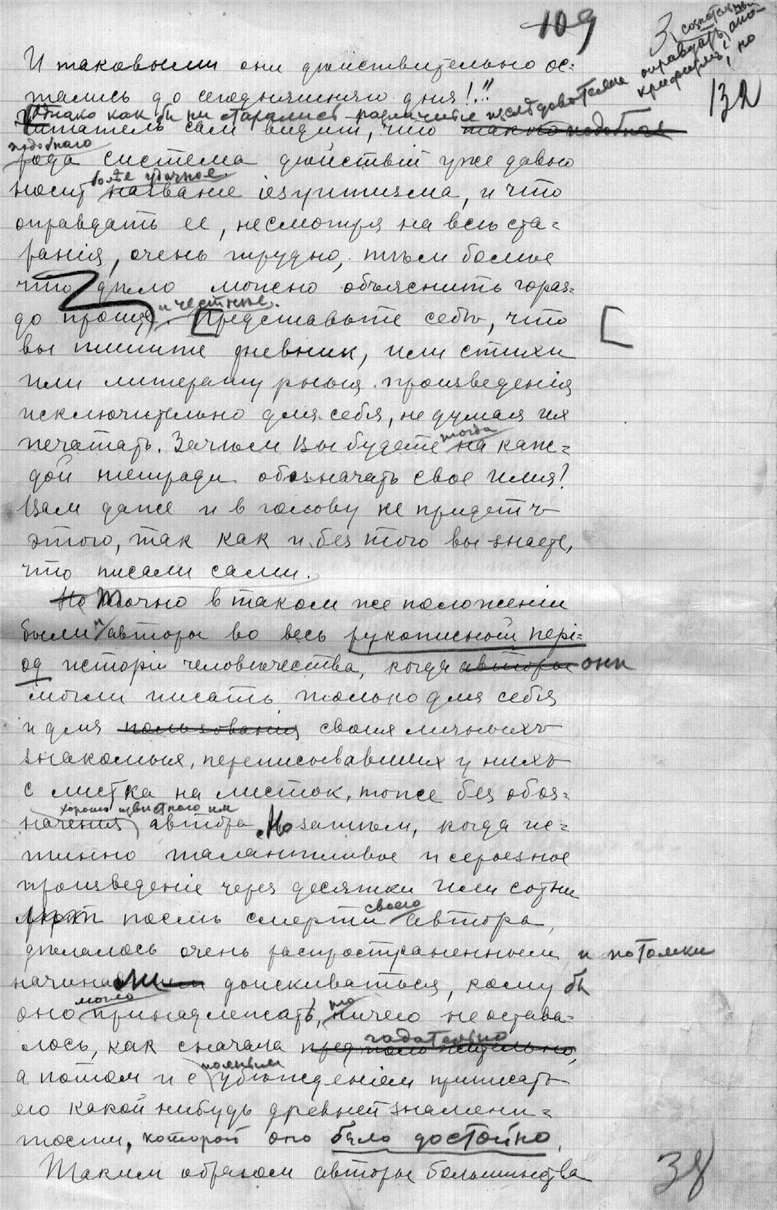 109
132
И таковыми они действительно ос-
тались до сегодняшняго дня!!!
Однако как бы ни старались различные
читатель сам видит, что такого подобнаго
подобнаго
рода система действiй уже давно
более удачное
носит название iезуитизма, и что
оправдать ее, несмотря на все ста-
ранiя, очень трудно, тѣм более
что дело можно объяснить гораз-
и честнее.
до проще. Представьте себѣ, что
вы пишите дневник, или стихи
или литературныя произведенiя
исключительно для себя, не думая их
тогда
печатать. Зачѣм Вы будете на каж-
дой тетради обозначать свое имя?
Вам даже и в голову не придетъ
этого, так как и без того вы знаете,
что писали сами.
Но Точно в таком же положенiи
были и авторы во весь рукописный перi-
од исторiи человѣчества, когда авторы они
могли писать только для себя
и для пользования своих личныхъ
знакомых, переписывавших у нихъ
с листка на листок, тоже без обоз-
хорошо известного им
начения автора. Но затѣм, когда ис-
тинно талантливое и серьезное
произведенiе через десятки или сотни
лѣт послѣ смерти своего автора,
дѣлалось очень распространенным и потомки
начинали доискиваться, кому бы
могло
оно принадлежать, то ничего не остава-
гадательно
лось, как сначала предположительно,
полным
а потом и с убѣжденiем приписать
его какой нибудь древней знамени-
тости, которой оно было достойно.
Таким образом авторы большинства
38